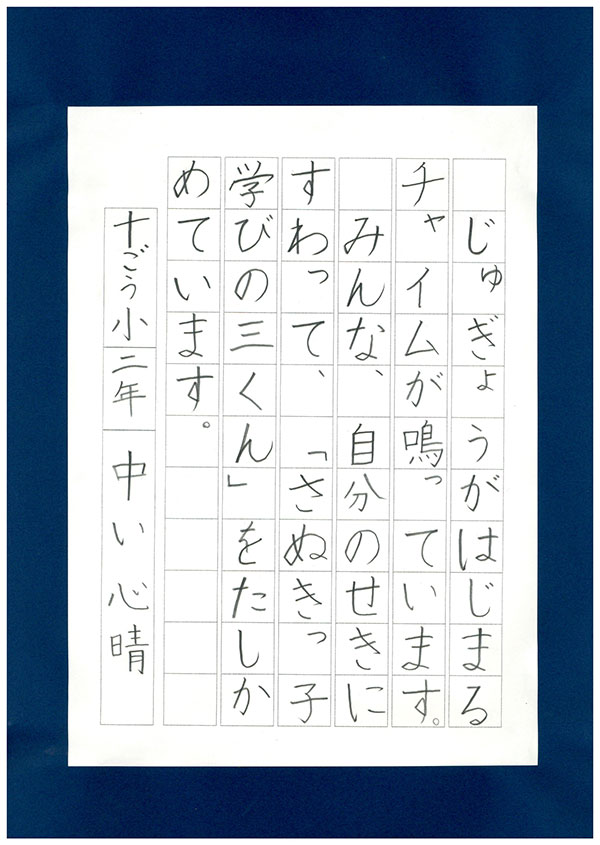 じゅぎょうがはじまる
チャイムが鳴っています。
みんな、自分のせきに
すわって、「さぬきっ子
学びの三くん」をたしか
めています。
十ごう小二年 中い心晴